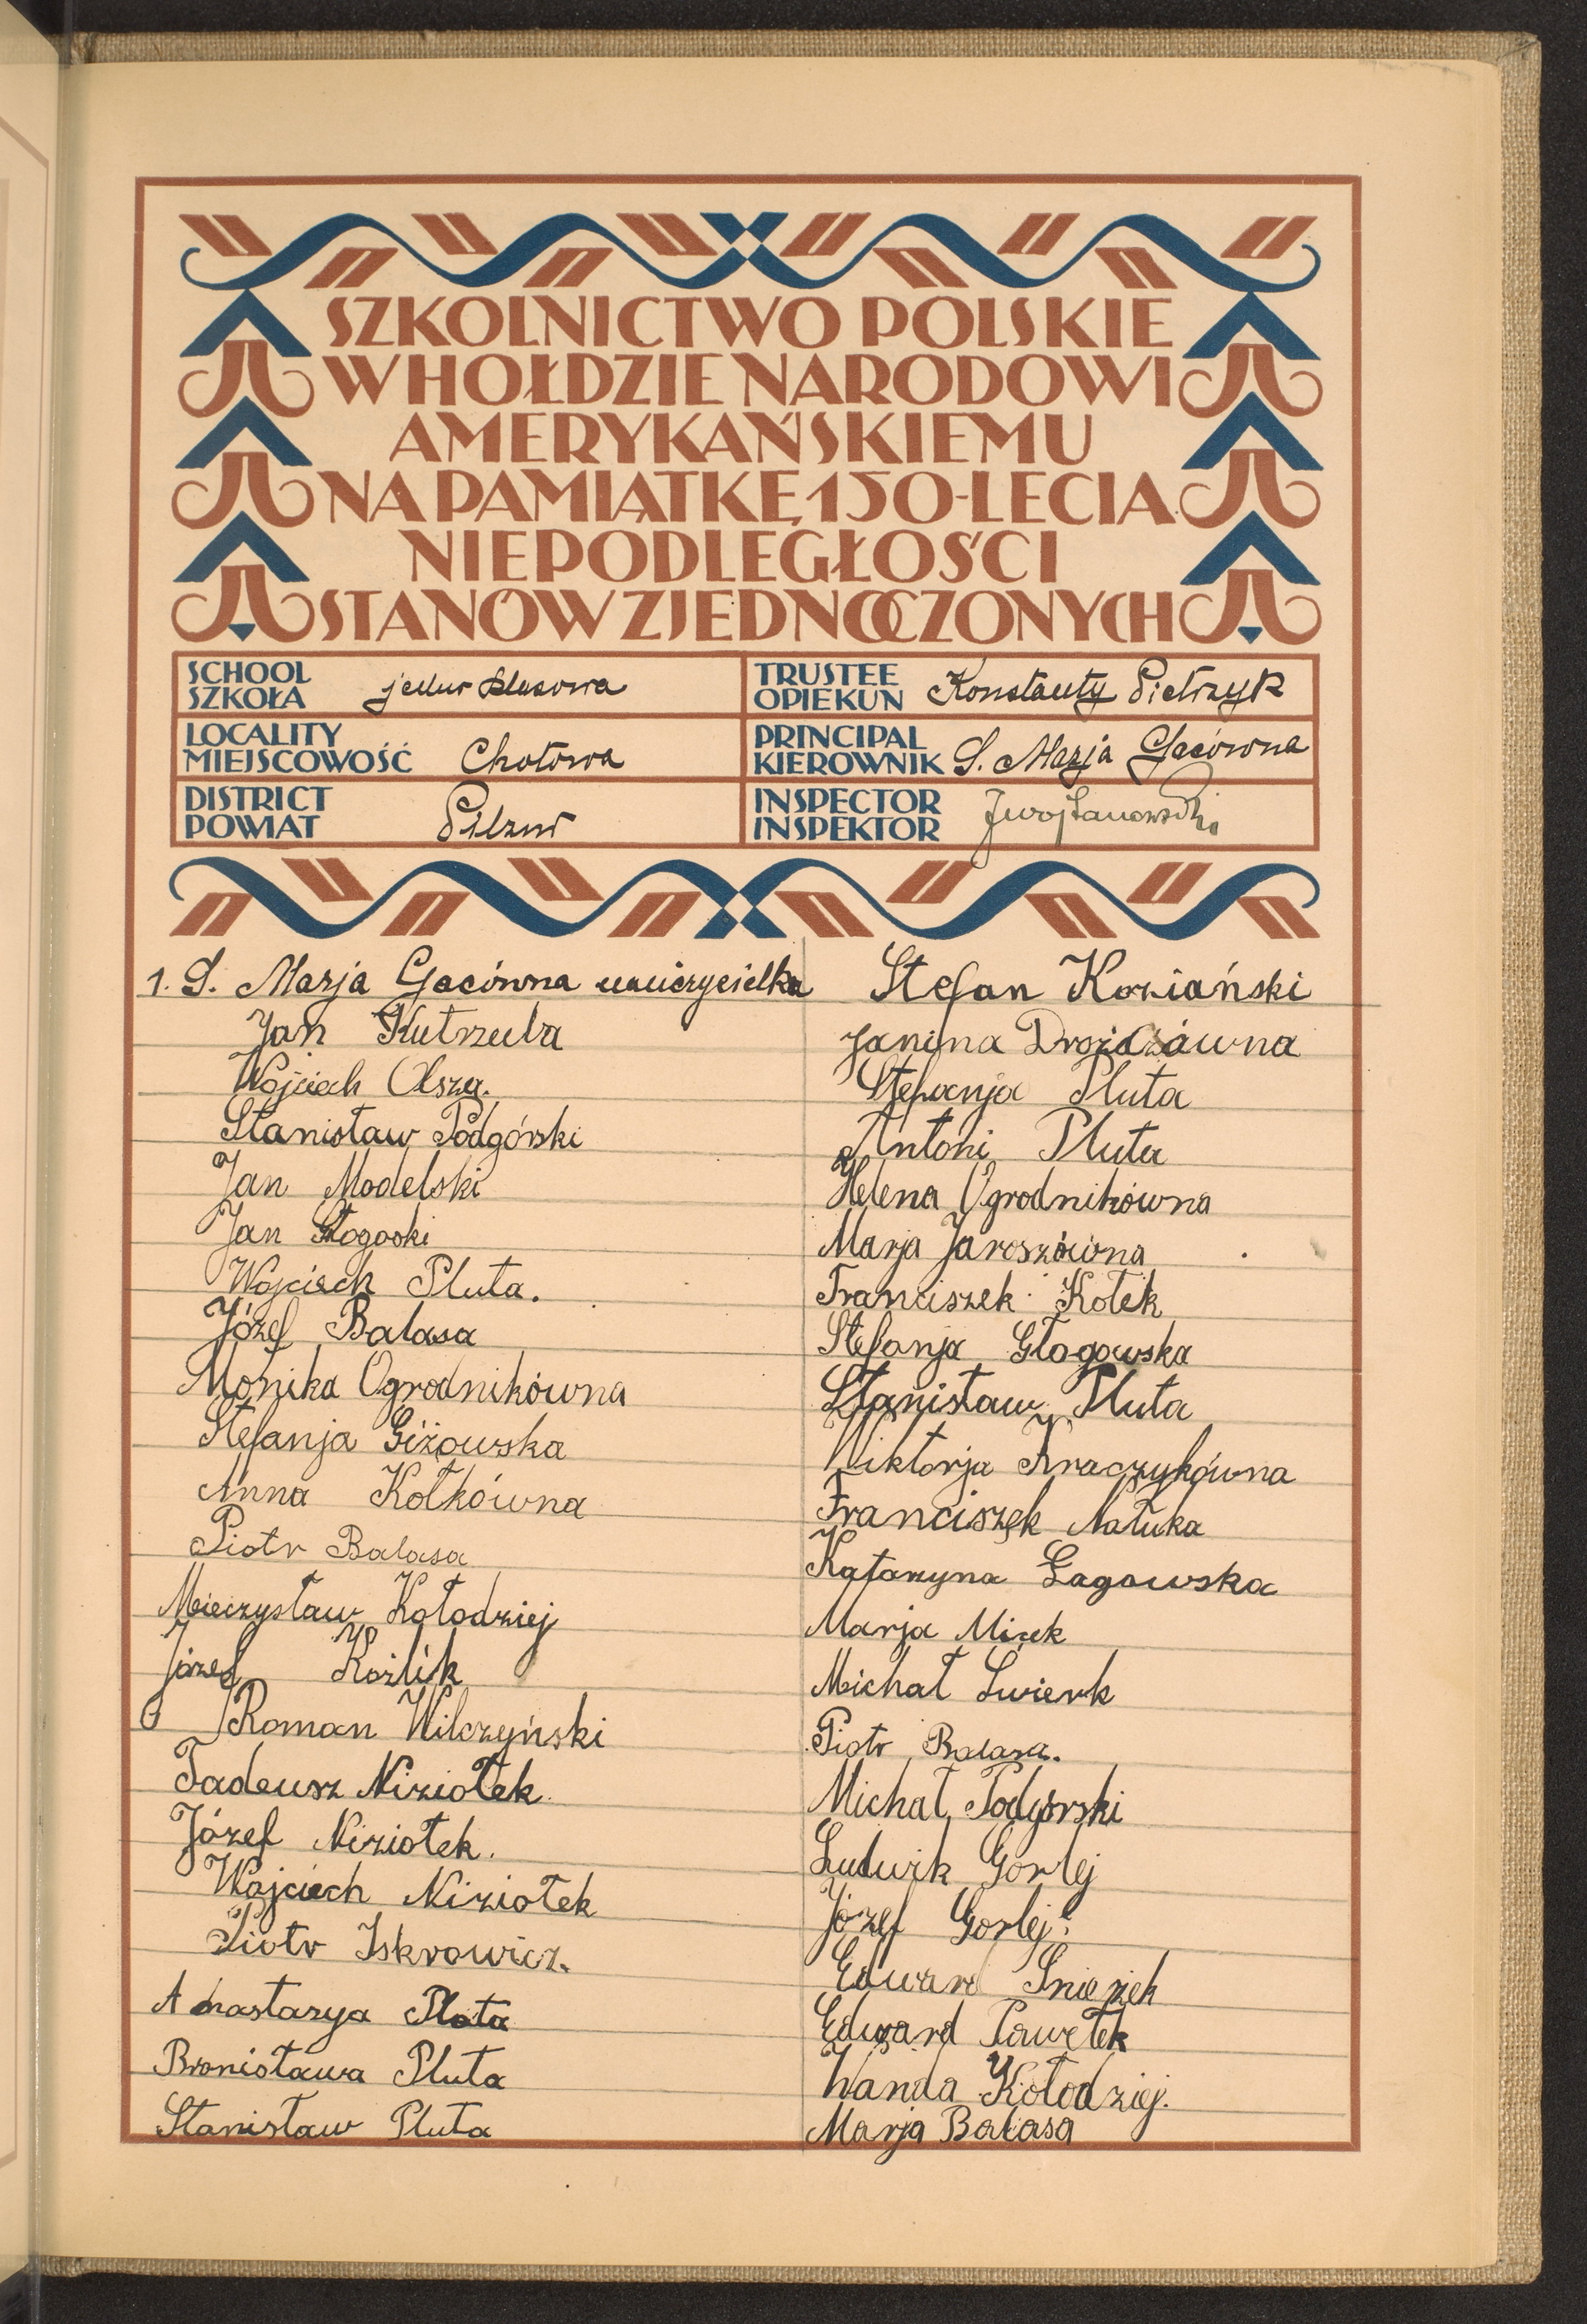 SZKOLNICTWO POLSKIE
W HOŁDZIE NARODOWI
AMERYKAŃSKIEMU
NA PAMIĄTKĘ 150-LECIA
NIEPODLEGŁOŚCI
STANÓW ZJEDNOCZONYCH
SCHOOL
SZKOŁA jedno klasowa
TRUSTEE
OPIEKUN Konstanty Pietrzyk
LOCALITY
MIEJSCOWOŚĆ Chotowa
PRINCIPAL
KIEROWNIK S. Marja Gacówna
DISTRICT
POWIAT Pilzno
INSPECTOR
INSPEKTOR
1. S. Marja Gacówna nauczycielka
Jan Kutrzuba
Wojciech Olsza.
Stanisław Podgórski
Jan Modelski
Jan
Wojciech Pluta.
Józef Balasa
Monika Ogrodnikówna
Stefanja Giżowska
Anna Kołkówna
Piotr Balasa
Mieczysław Kołodziej
Józef Koźlik
Roman Wilczyński
Tadeusz Niziołek.
Józef Niziołek.
Wojciech Niziołek
Piotr Iskrowicz.
Anastazya Pluta
Bronisława Pluta
Stanisław Pluta
Stefan Koziański
Janina
Stefanja Pluta
Antoni Pluta
Helena Ogrodnikówna
Marja Jaroszówna
Franciszek Kotek
Stefanja Głogowska
Stanisław Pluta
Wiktorja Kraczykówna
Franciszek Natuka
Katarzyna Łagowska
Marja Mizek
Michał Świerk
Piotr Balasa.
Michał Podgórski
Ludwik Gorlej
Józef Gorlej.
Edward Śnieżek
Edward Pawełek
Wanda Kołodziej.
Marja Bałasa